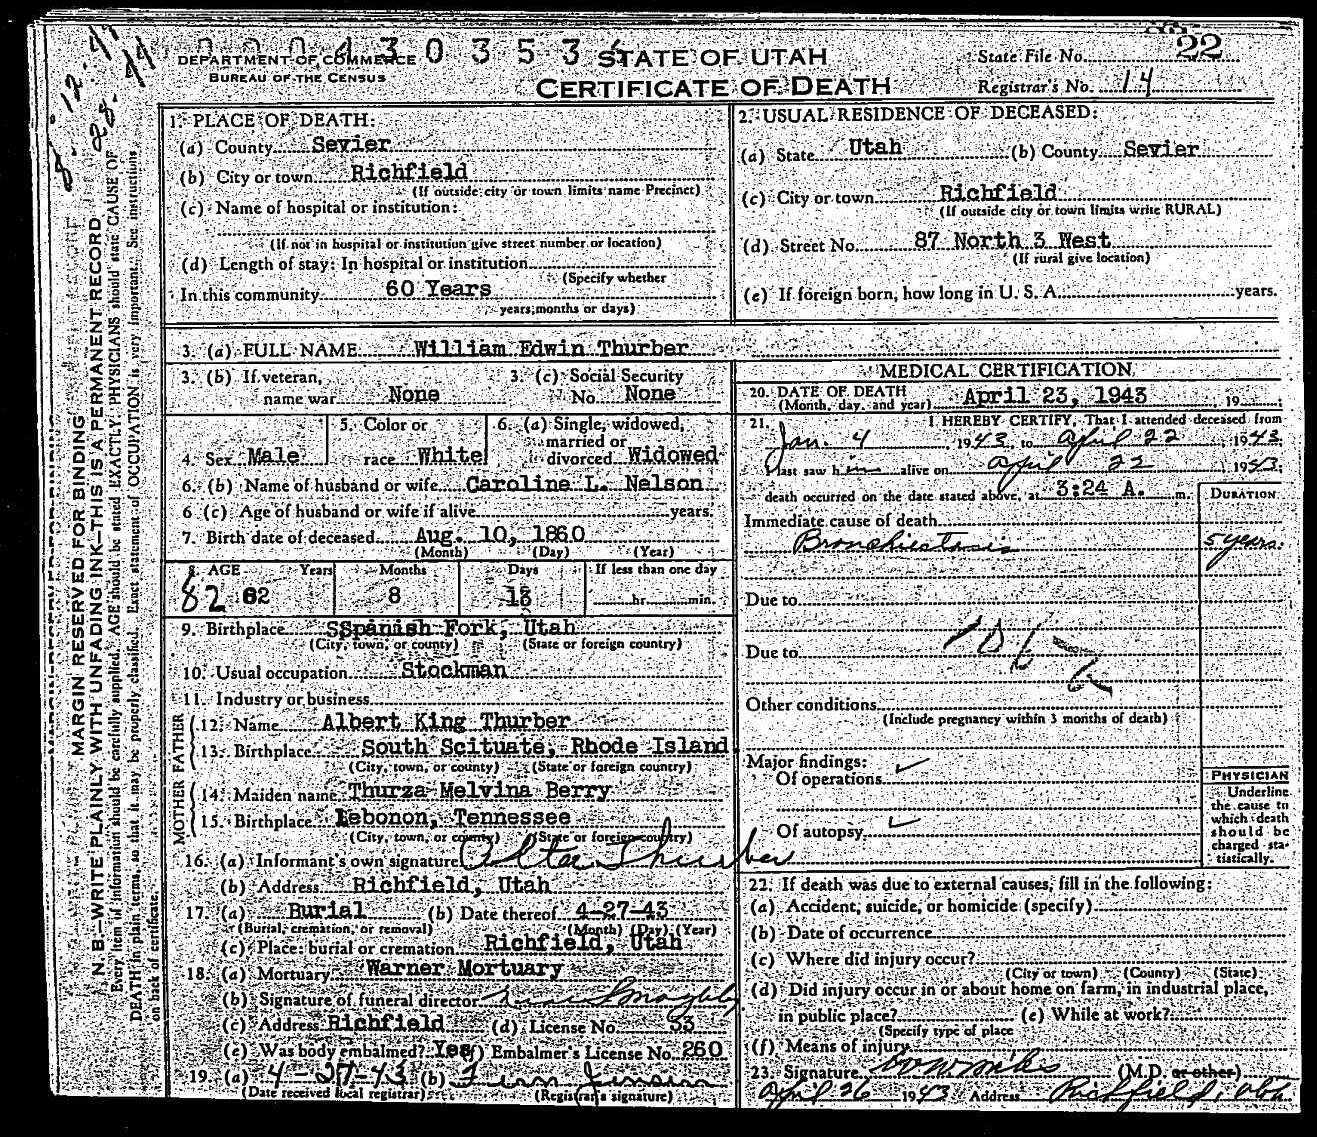 0 0 4 3 0 3 5 3
STATE OF UTAH
22
DEPARTMENT OF COMMERCE
BUREAU OF THE CENSUS
CERTIFICATE OF DEATH
State File No. 22
Registrar's No. 14
MARGIN RESERVED FOR BINDING
N. B.—WRITE PLAINLY WITH UNFADING INK—THIS IS A PERMANENT RECORD
Every item of information should be carefully supplied. AGE should be stated EXACTLY. PHYSICIANS should state CAUSE OF
DEATH in plain terms, so that it may be properly classified. Exact statement of OCCUPATION is very important. See instructions
on back of certificate.
1. PLACE OF DEATH:
(a) County Sevier
(b) City or town Richfield
(If outside city or town limits name Precinct)
(c) Name of hospital or institution:
(If not in hospital or institution give street number or location)
(d) Length of stay: In hospital or institution
(Specify whether
In this community 60 Years
years, months or days)
2. USUAL RESIDENCE OF DECEASED:
(a) State Utah (b) County Sevier
(c) City or town Richfield
(If outside city or town limits write RURAL)
(d) Street No. 87 North 3 West
(If rural give location)
(e) If foreign born, how long in U. S. A. years.
3. (a) FULL NAME William Edwin Thurber
3. (b) If veteran,
name war None
3. (c) Social Security
No. None
4. Sex Male
5. Color or
race White
6. (a) Single, widowed,
married or
divorced Widowed
6. (b) Name of husband or wife Caroline L. Nelson
6 (c) Age of husband or wife if alive years.
7. Birth date of deceased Aug. 10, 1860
(Month) (Day) (Year)
8. AGE Years Months Days If less than one day
82 82 8 13 hr. min.
9. Birthplace SSpanish Fork, Utah
(City, town, or county) (State or foreign country)
10. Usual occupation Stockman
11. Industry or business
FATHER
12. Name Albert King Thurber
13. Birthplace South Scituate, Rhode Island
(City, town, or county) (State or foreign country)
MOTHER
14. Maiden name Thurza Melvina Berry
15. Birthplace Lebonon, Tennessee
(City, town, or county) (State or foreign country)
16. (a) Informant's own signature Thurber
(b) Address Richfield, Utah
17. (a) Burial (b) Date thereof 4-27-43
(Burial, cremation, or removal) (Month) (Day) (Year)
(c) Place: burial or cremation Richfield, Utah
18. (a) Mortuary Warner Mortuary
(b) Signature of funeral director
(c) Address Richfield (d) License No. 33
(e) Was body embalmed? Yes (f) Embalmer's License No. 260
19. (a) 4-27-43 (b)
(Date received local registrar) (Registrar's signature)
MEDICAL CERTIFICATION
20. DATE OF DEATH
(Month, day, and year) April 23, 1943, 19
21. I HEREBY CERTIFY, That I attended deceased from
Jan. 4 1943, to April 22 1943,
I last saw him alive on April 22, 1943,
death occurred on the date stated above, at 3:24 A. m.
DURATION
Immediate cause of death
Bronchiectasis 5 years.
Due to
Due to
Other conditions
(Include pregnancy within 3 months of death)
Major findings:
Of operations
Of autopsy
PHYSICIAN
Underline
the cause to
which death
should be
charged sta-
tistically.
22. If death was due to external causes, fill in the following:
(a) Accident, suicide, or homicide (specify)
(b) Date of occurrence
(c) Where did injury occur?
(City or town) (County) (State)
(d) Did injury occur in or about home on farm, in industrial place,
in public place? (e) While at work?
(Specify type of place
(f) Means of injury
23. Signature (M.D. or other)
April 26 1943 Address Richfield, Utah.